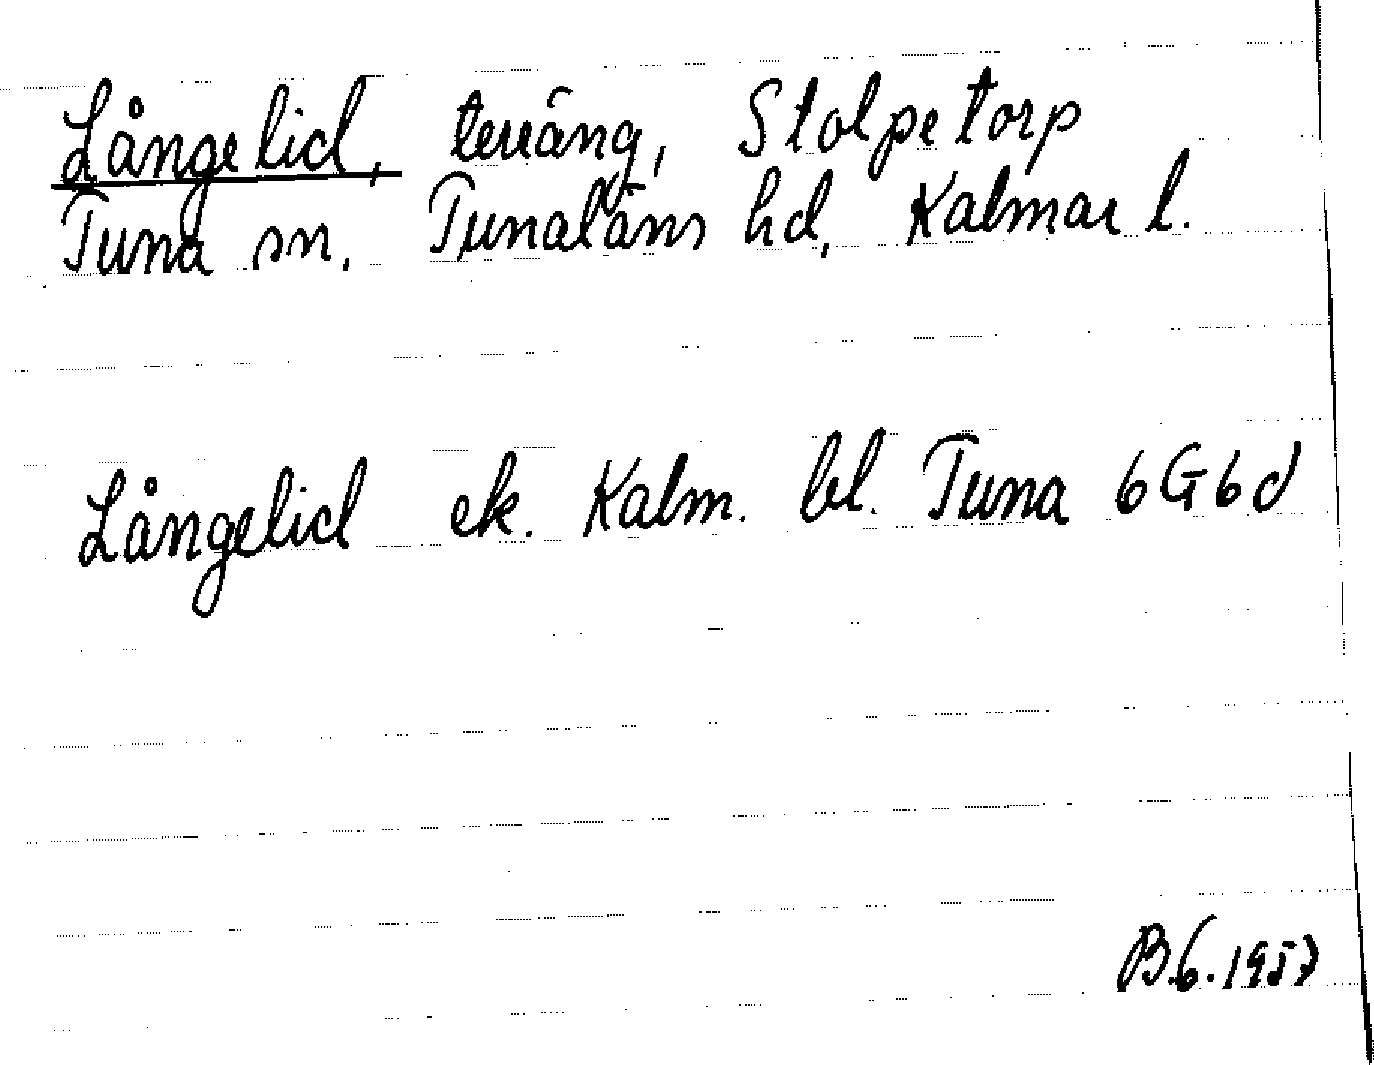 Långelid, terräng, Stolpetorp
Tuna sn. Tunaläns hd, Kalmar l.
Långelid ek. Kalm. bl. Tuna 6G6d
B.G. 1957